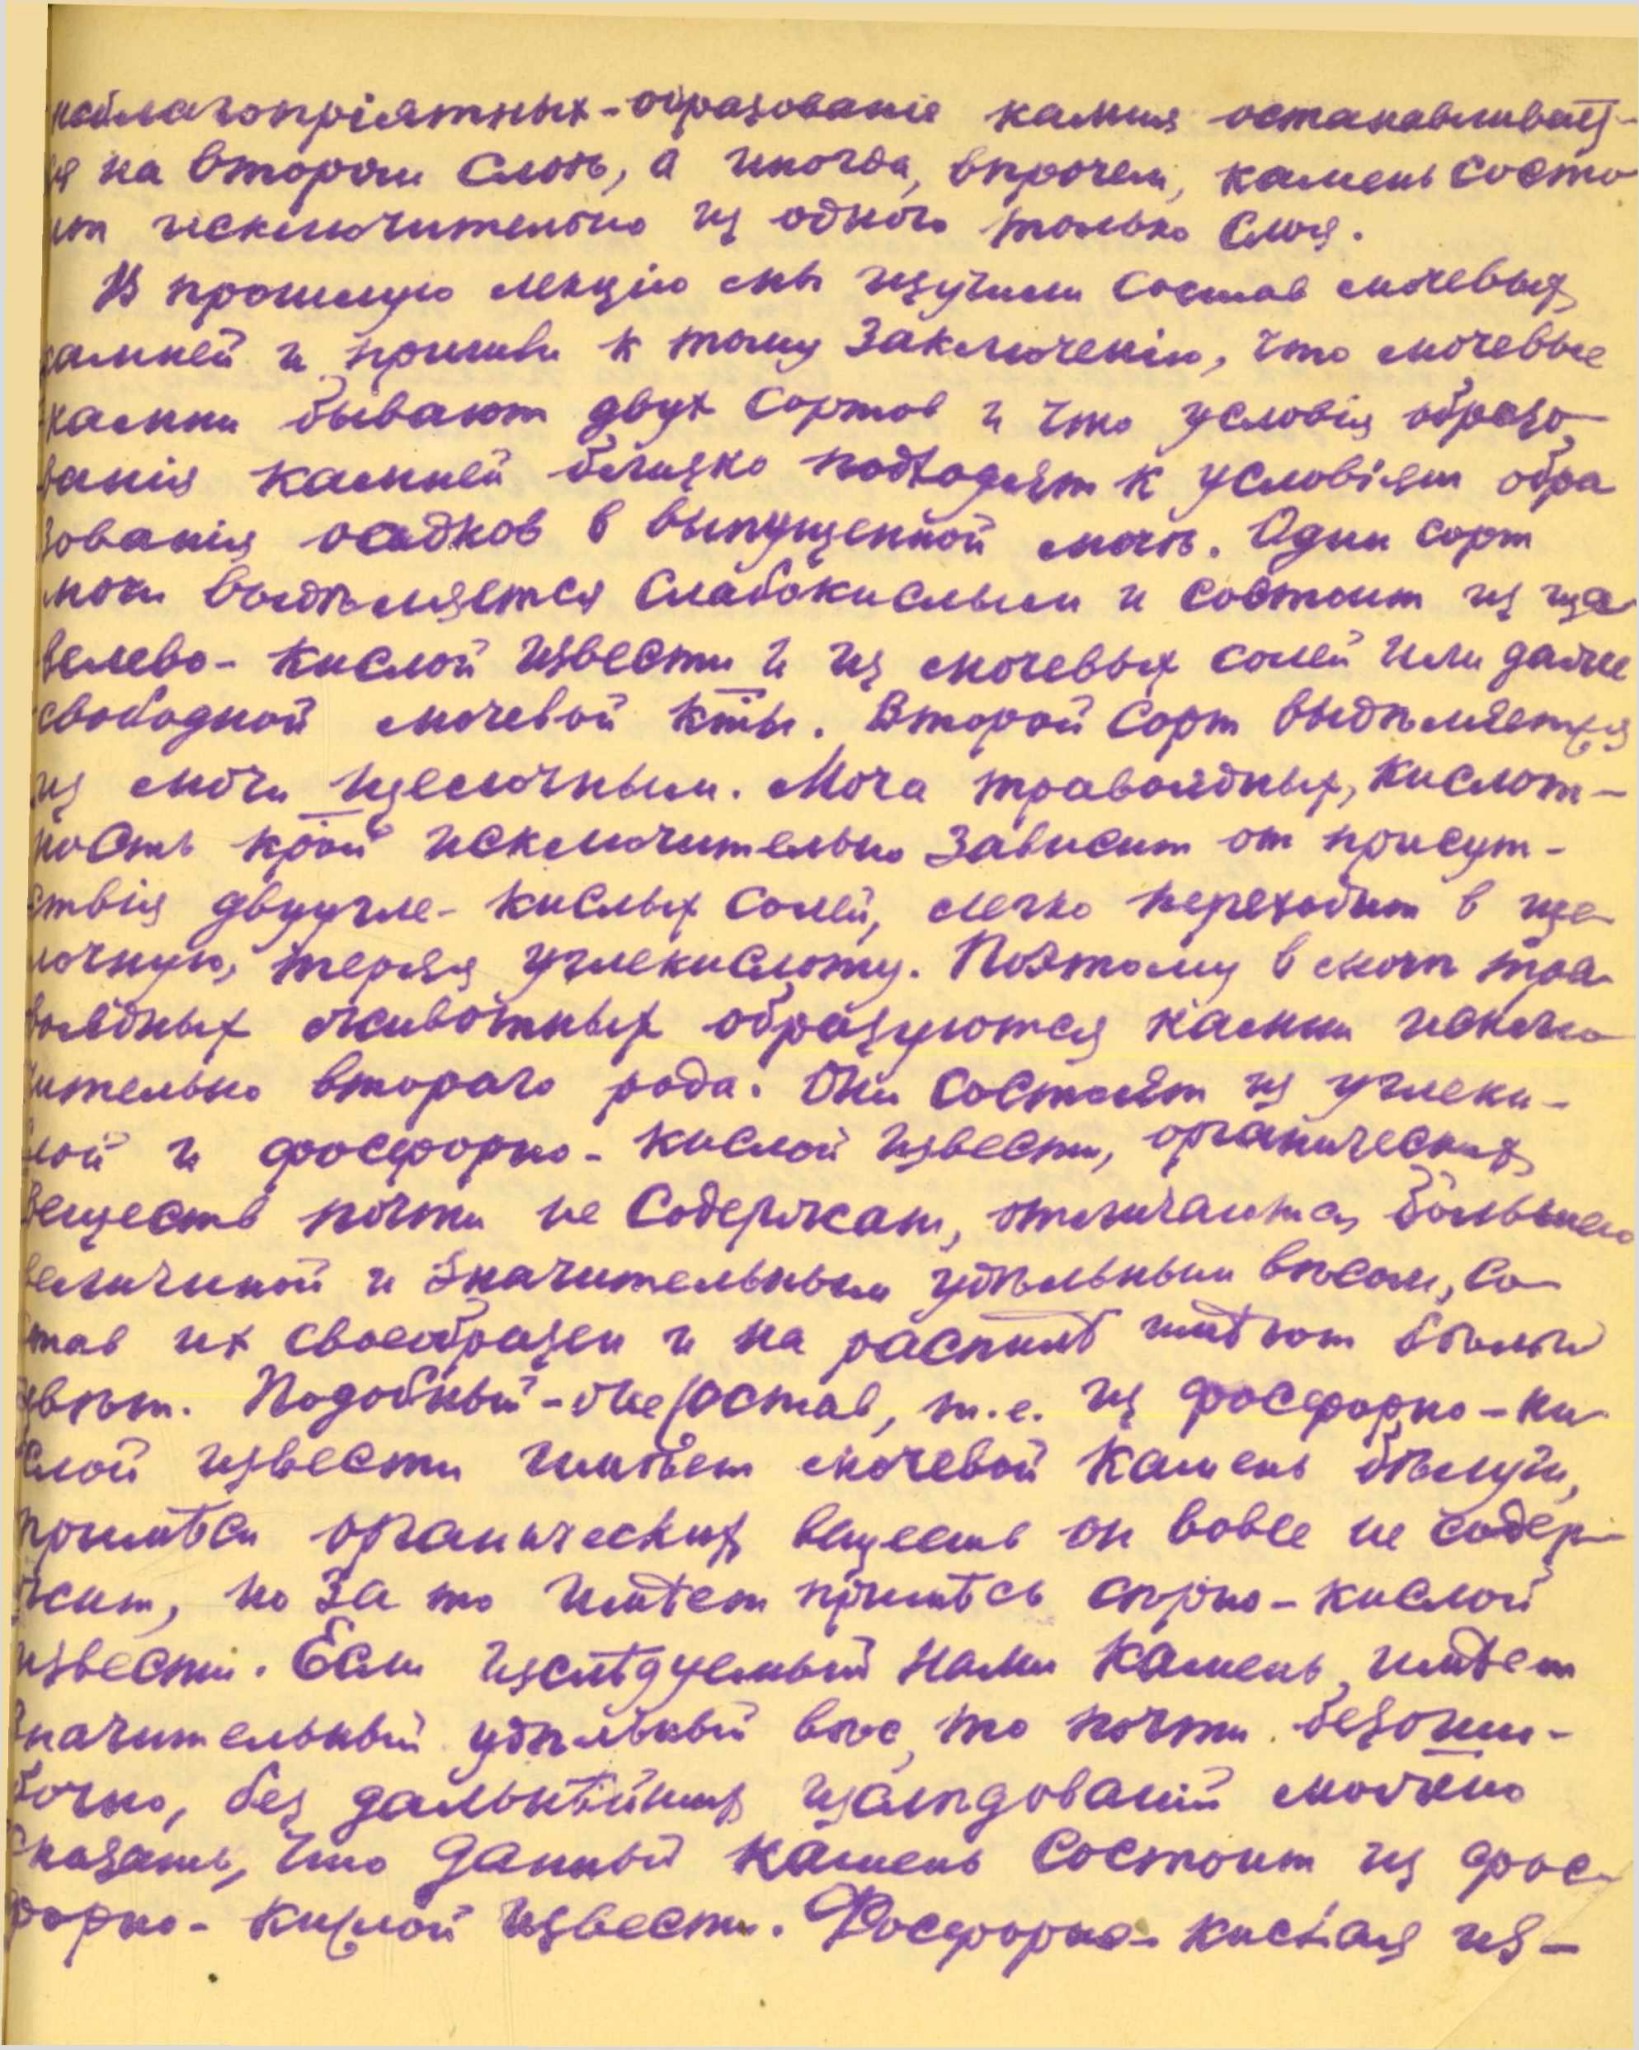 неблагопріятных-образованіе камня останавливает-
ся на втором слоѣ, а иногда, впрочем, камень состо
ит исключительно из одного только слоя.
В прошлую лекцію мы изучили состав мочевых
камней и пришли к тому заключенію, что мочевые
камни бывают двух сортов и что условія образо-
ванія камней близко подходят к условіям обра
зованія осадков в выпущенной мочѣ. Один сорт
мочи выдѣляется слабокислым и состоит из ща
велево-кислой извести и из мочевых солей или даже
свободной мочевой к-ты. Второй сорт выдѣляется
из мочи щелочным. Моча травоядных, кислот-
ность крой исключительно зависит от присут-
ствія двуугле-кислых солей, легко переходит в ще
лочную, теряя углекислоту. Поэтому в мочѣ тра
воядных животных образуются камни исклю
чительно второго рода. Они состоят из углеки-
слой и фосфорно-кислой извести, органических
веществ почти не содержат, отличаются большею
величиной и значительным удѣльным вѣсом, со
став их своеобразен и на распилѣ имѣют бѣлый
цвѣт. Подобный-же состав, т.е. из фосфорно-ки
слой извести имѣет мочевой камень бѣлуги,
примѣси органических веществ он вовсе не содер
жит, но за то имѣет примѣсь сѣрно-кислой
извести. Если изслѣдуемый нами камень имѣет
значительный удѣльный вѣс, то почти безоши-
бочно, без дальнѣйших изслѣдованій можно
сказать, что данный камень состоит из фос-
форно-кислой извести. Фосфорно-кислая из-